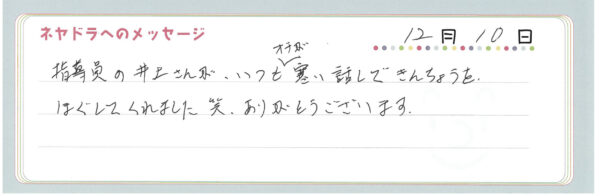 ネヤドラへのメッセージ
12月10日
オチが
指導員の井上さんが、いつも寒い話しできんちょうを、
ほぐしてくれました笑、ありがとうございます。